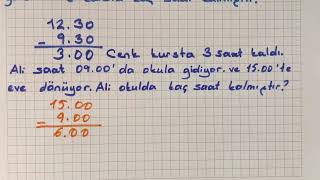 kaç saat kalmıştır?
12.30
- 9.30
3.00 Cenk kursta 3 saat kaldı.
Ali saat 09.00'da okula gidiyor. ve 15.00'te
eve dönüyor. Ali okulda kaç saat kalmıştır?
15.00
- 9.00
6.00